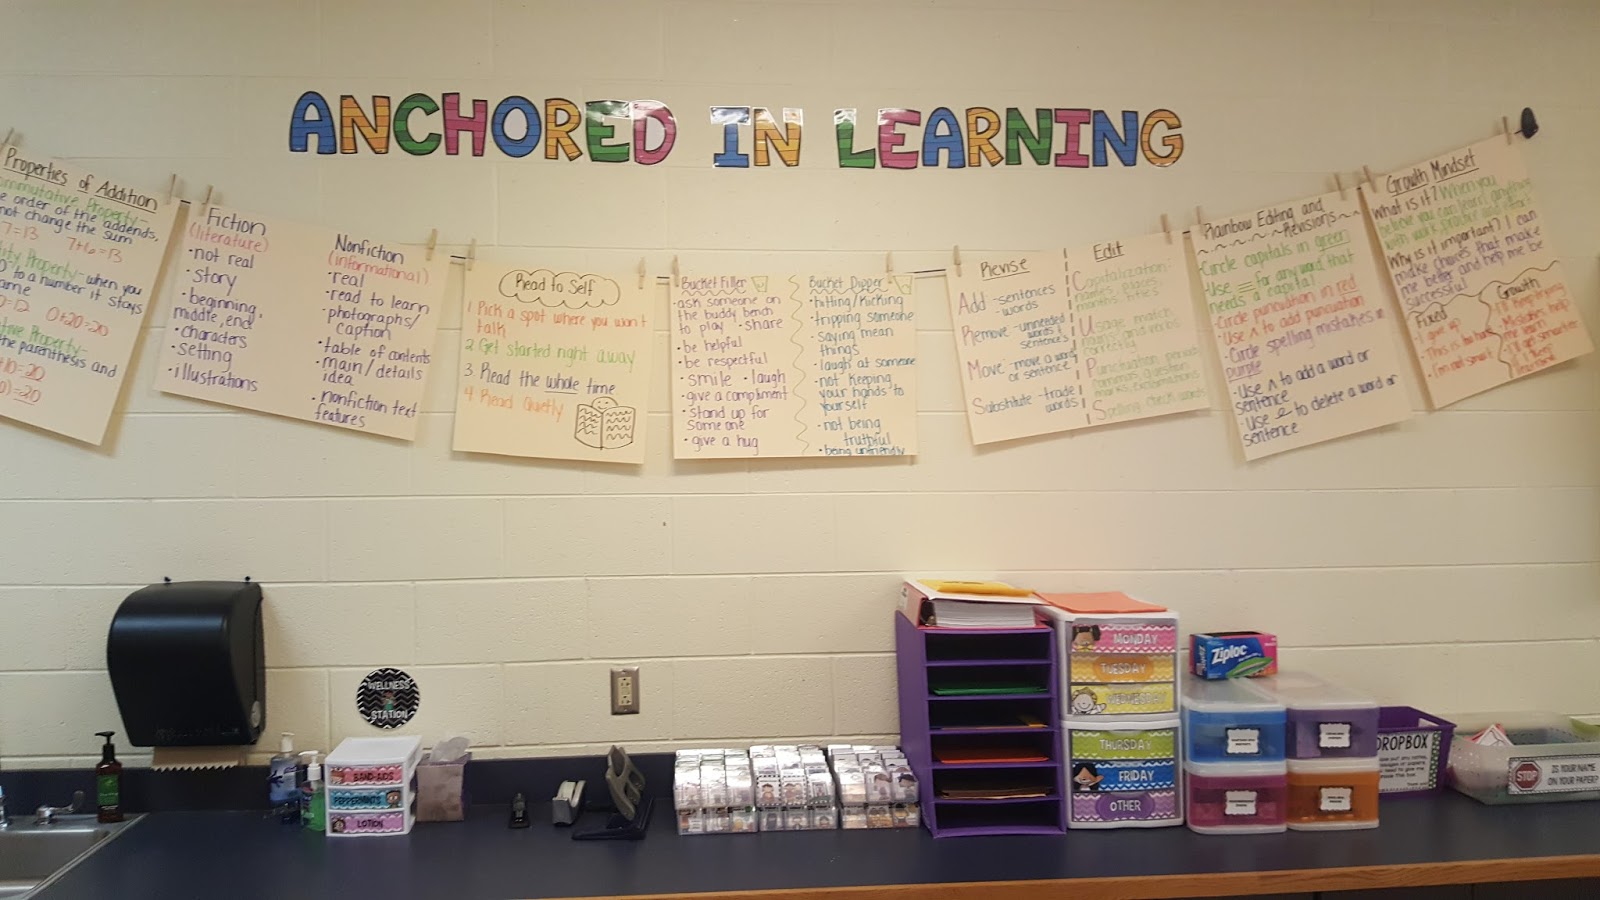 ANCHORED IN LEARNING
Properties of Addition
Commutative Property-
order of the addends,
not change the sum
7=13 7+6=13
Property- when you
to a number it stays
0+20=20
Property-
the parenthesis and
Fiction
(literature)
• not real
• story
• beginning,
middle, end
• characters
• setting
• illustrations
Nonfiction
(informational)
• real
• read to learn
• photographs/
caption
• table of contents
• main/details
idea
• nonfiction text
features
Read to Self
1. Pick a spot where you won't
talk
2. Get started right away
3. Read the whole time
4. Read Quietly
Bucket Filler
• ask someone on
the buddy bench
to play • share
• be helpful
• be respectful
• smile • laugh
• give a compliment
• stand up for
someone
• give a hug
Bucket Dipper
• hitting/kicking
• tripping someone
• saying mean
things
• laugh at someone
• not keeping
your hands to
yourself
• not being
truthful
• being unfriendly
Revise
Add - sentences
- words
Remove - unneeded
words +
sentences
Move - move a word
or sentence
Substitute - trade
words
Edit
Capitalization:
names, places,
months, titles
Usage: match
nouns and verbs
correctly
Punctuation: periods,
commas, question
marks, exclamations
Spelling: check words
Rainbow Editing and
Revisions
• Circle capitals in green
• Use for any word that
needs a capital
• Circle punctuation in red
• Use ^ to add punctuation
• Circle spelling mistakes in
purple
• Use ^ to add a word or
sentence
• Use to delete a word or
sentence
Growth Mindset
What is it? When you
believe you can learn anything
with work, positive and effort
Why is it important? I can
make choices that make
me better and help me be
successful
Fixed
• I give up
• This is too hard
• I'm not smart
Growth
• I'll keep trying
• Mistakes help
me learn
WELLNESS
STATION
BAND-AIDS
PEPPERMINTS
LOTION
MONDAY
TUESDAY
WEDNESDAY
THURSDAY
FRIDAY
OTHER
Ziploc
DROPBOX
STOP
IS YOUR NAME
ON YOUR PAPER?